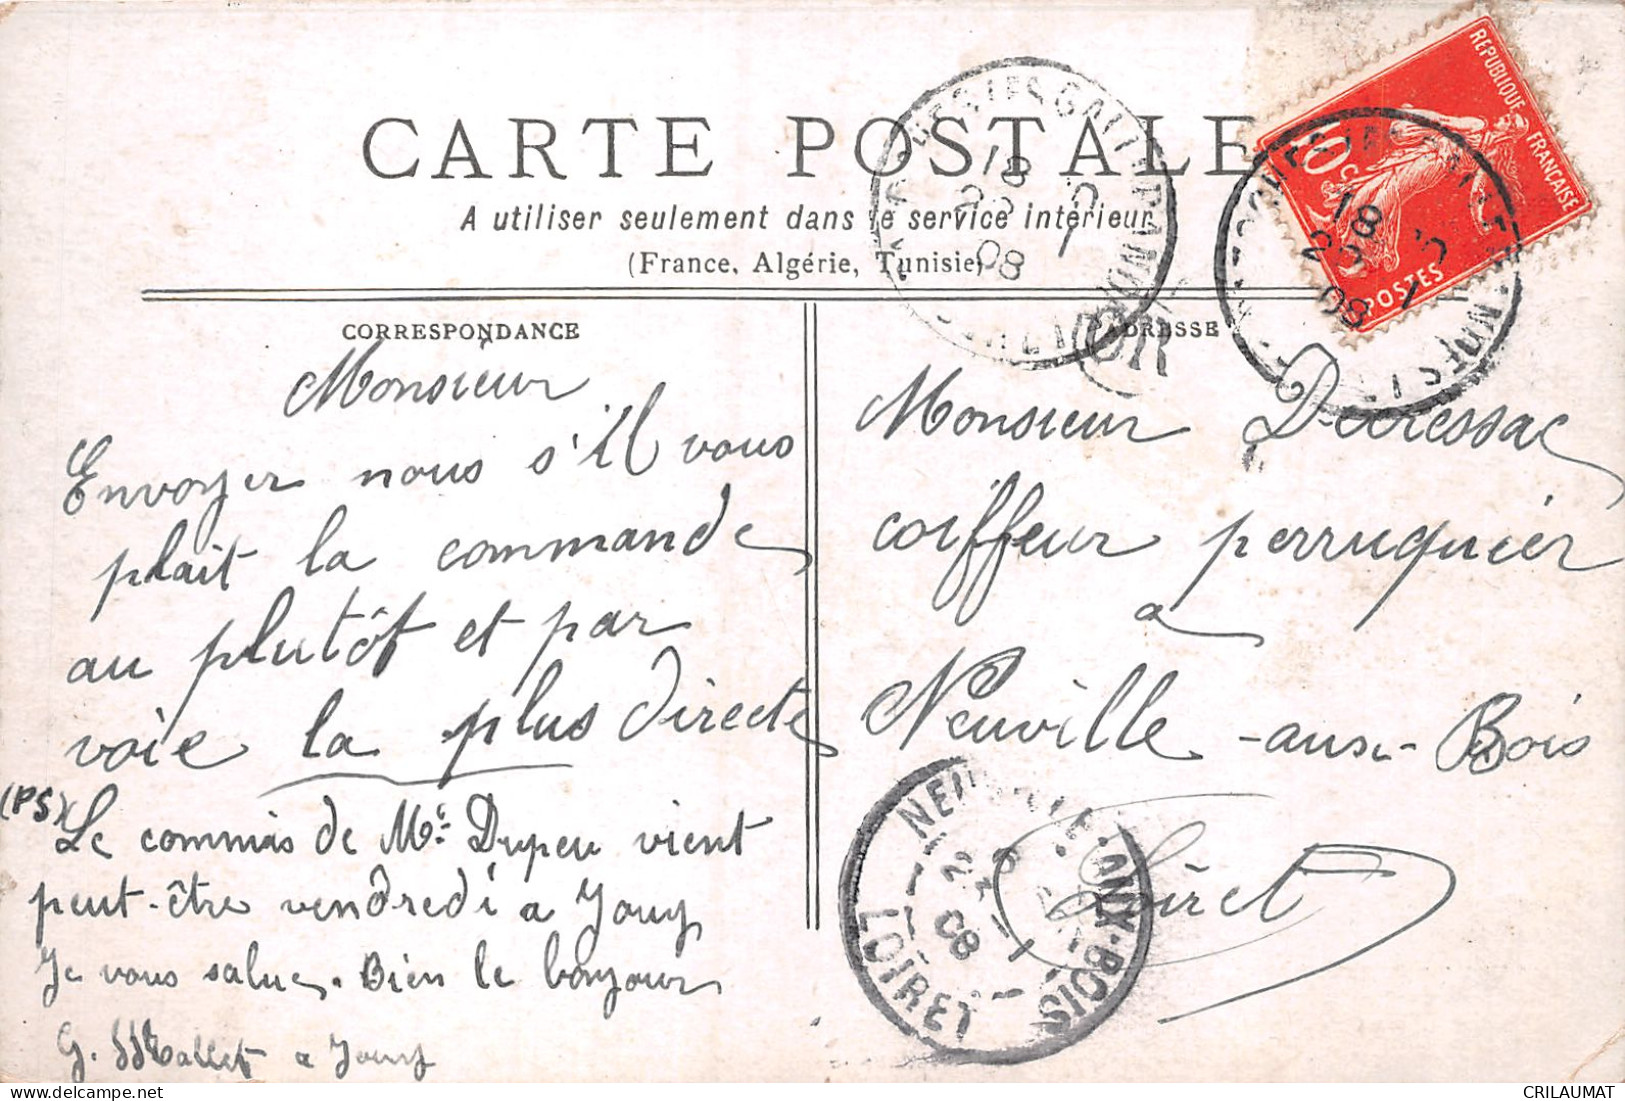 CARTE POSTALE
A utiliser seulement dans le service intérieur
(France, Algérie, Tunisie)
CORRESPONDANCE
Monsieur
Envoyer nous s'il vous
plait la commande
au plutôt et par
voie la plus directe
(PS) Le commis de Mr Dupeu vient
peut-être vendredi a Jouy
Je vous salue. Bien le bonjour
G. Mallet a Jouy
ADRESSE
Monsieur
coiffeur perruquier
a
Neuville-aux-Bois
Loiret
REPUBLIQUE FRANÇAISE
10 c
POSTES
18
08
OR
18
08
NEUVILLE-AUX-BOIS
08
LOIRET
CRILAUMAT